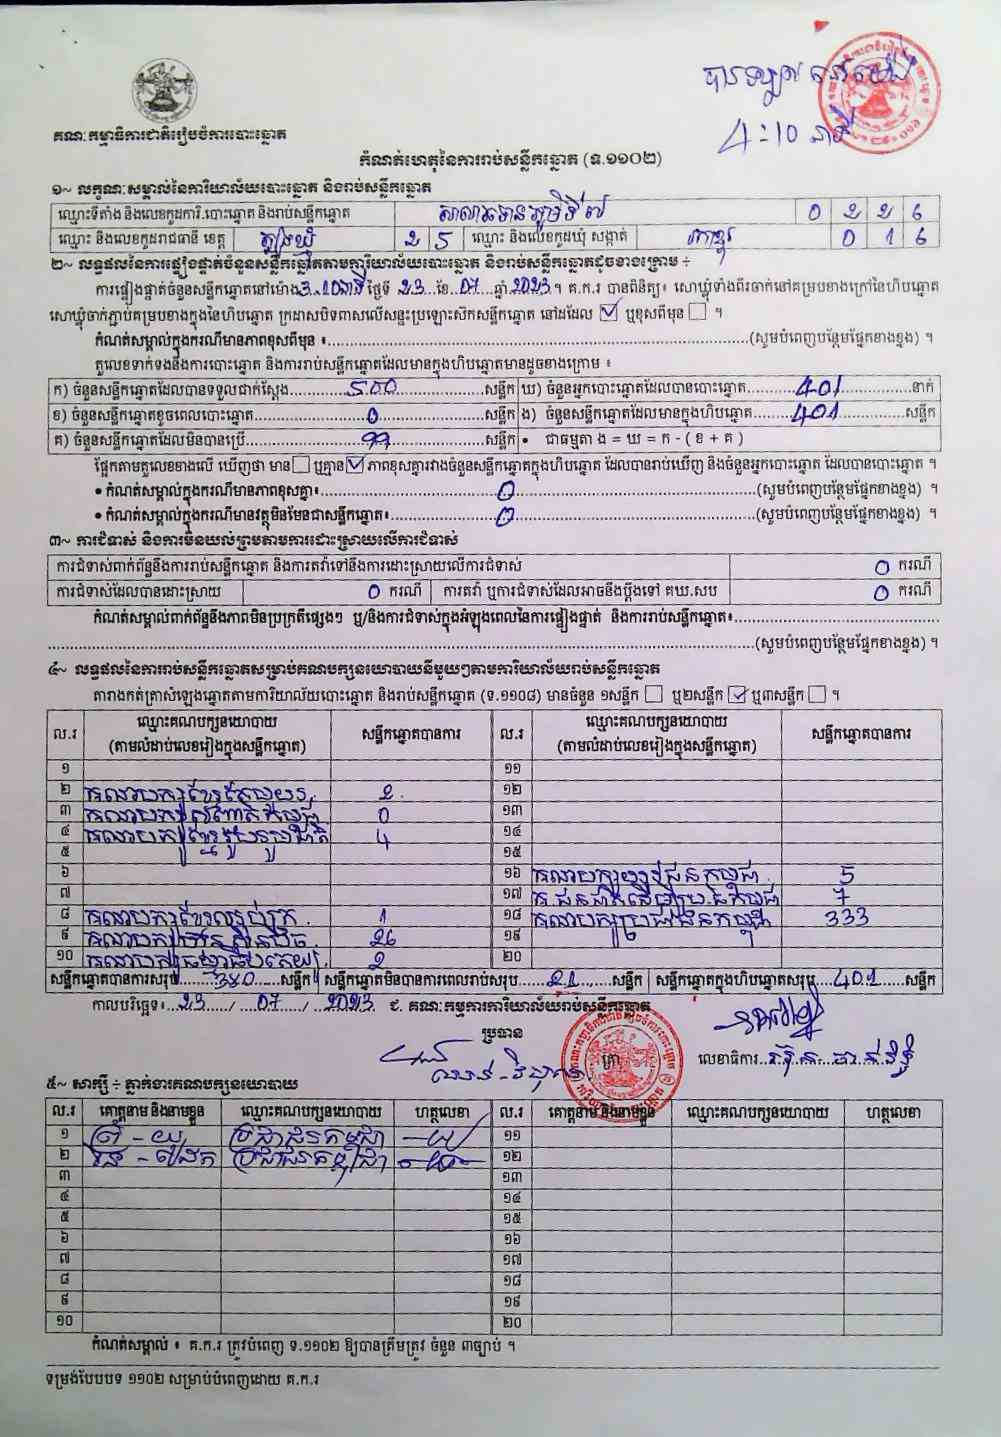 បានឃើញ
4:10 នាទី
គណៈកម្មាធិការជាតិរៀបចំការបោះឆ្នោត
កំណត់ហេតុនៃការរាប់សន្លឹកឆ្នោត (ទ.១១០២)
១~ លក្ខណៈសម្គាល់នៃការិយាល័យបោះឆ្នោត និងរាប់សន្លឹកឆ្នោត
ឈ្មោះទីតាំង និងលេខកូដការិ.បោះឆ្នោត និងរាប់សន្លឹកឆ្នោត សាលាឆទានភូមិទី៧ 0 2 2 6
ឈ្មោះ និងលេខកូដរាជធានី ខេត្ត ត្បូងឃ្មុំ 2 5 ឈ្មោះ និងលេខកូដឃុំ សង្កាត់ 0 1 6
២~ លទ្ធផលនៃការផ្ទៀងផ្ទាត់ចំនួនសន្លឹកឆ្នោតតាមការិយាល័យបោះឆ្នោត និងរាប់សន្លឹកឆ្នោតដូចខាងក្រោម ÷
ការផ្ទៀងផ្ទាត់ចំនួនសន្លឹកឆ្នោតនៅម៉ោង 3:10នាទី ថ្ងៃទី 23 ខែ 07 ឆ្នាំ 2023 ។ គ.ក.រ បានពិនិត្យ៖ សោឃ្មុំទាំងពីរចាក់នៅគម្របខាងក្រៅនៃហិបឆ្នោត
សោឃ្មុំចាក់ភ្ជាប់គម្របខាងក្នុងនៃហិបឆ្នោត ក្រដាសបិទពាសលើសន្ទះប្រឡោះសឹកសន្លឹកឆ្នោត នៅដដែល ☑ ឬខុសពីមុន ☐ ។
កំណត់សម្គាល់ក្នុងករណីមានភាពខុសពីមុន ៖ (សូមបំពេញបន្ថែមផ្នែកខាងខ្នង) ។
តួលេខទាក់ទងនឹងការបោះឆ្នោត និងការរាប់សន្លឹកឆ្នោតដែលមានក្នុងហិបឆ្នោតមានដូចខាងក្រោម ៖
ក) ចំនួនសន្លឹកឆ្នោតដែលបានទទួលជាក់ស្តែង 500 សន្លឹក ឃ) ចំនួនអ្នកបោះឆ្នោតដែលបានបោះឆ្នោត 401 នាក់
ខ) ចំនួនសន្លឹកឆ្នោតខូចពេលបោះឆ្នោត 0 សន្លឹក ង) ចំនួនសន្លឹកឆ្នោតដែលមានក្នុងហិបឆ្នោត 401 សន្លឹក
គ) ចំនួនសន្លឹកឆ្នោតដែលមិនបានប្រើ 99 សន្លឹក • ជាធម្មតា ង = ឃ = ក - ( ខ + គ )
ផ្អែកតាមតួលេខខាងលើ ឃើញថា មាន ☐ ឬគ្មាន ☑ ភាពខុសគ្នារវាងចំនួនសន្លឹកឆ្នោតក្នុងហិបឆ្នោត ដែលបានរាប់ឃើញ និងចំនួនអ្នកបោះឆ្នោត ដែលបានបោះឆ្នោត ។
• កំណត់សម្គាល់ក្នុងករណីមានភាពខុសគ្នា៖ 0 (សូមបំពេញបន្ថែមផ្នែកខាងខ្នង) ។
• កំណត់សម្គាល់ក្នុងករណីមានវត្ថុមិនមែនជាសន្លឹកឆ្នោត៖ 0 (សូមបំពេញបន្ថែមផ្នែកខាងខ្នង) ។
៣~ ការជំទាស់ និងការមិនយល់ព្រមតាមការដោះស្រាយលើការជំទាស់
ការជំទាស់ពាក់ព័ន្ធនឹងការរាប់សន្លឹកឆ្នោត និងការតវ៉ាទៅនឹងការដោះស្រាយលើការជំទាស់ 0 ករណី
ការជំទាស់ដែលបានដោះស្រាយ 0 ករណី ការតវ៉ា ឬការជំទាស់ដែលអាចនឹងប្តឹងទៅ គឃ.សប 0 ករណី
កំណត់សម្គាល់ពាក់ព័ន្ធនឹងភាពមិនប្រក្រតីផ្សេងៗ ឬ/និងការជំទាស់ក្នុងអំឡុងពេលនៃការផ្ទៀងផ្ទាត់ និងការរាប់សន្លឹកឆ្នោត៖
(សូមបំពេញបន្ថែមផ្នែកខាងខ្នង) ។
៤~ លទ្ធផលនៃការរាប់សន្លឹកឆ្នោតសម្រាប់គណបក្សនយោបាយនីមួយៗតាមការិយាល័យរាប់សន្លឹកឆ្នោត
តារាងកត់ត្រាសំឡេងឆ្នោតតាមការិយាល័យបោះឆ្នោត និងរាប់សន្លឹកឆ្នោត (ទ.១១០៨) មានចំនួន ១សន្លឹក ☐ ឬ២សន្លឹក ☑ ឬ៣សន្លឹក ☐ ។
ល.រ ឈ្មោះគណបក្សនយោបាយ សន្លឹកឆ្នោតបានការ ល.រ ឈ្មោះគណបក្សនយោបាយ សន្លឹកឆ្នោតបានការ
(តាមលំដាប់លេខរៀងក្នុងសន្លឹកឆ្នោត) (តាមលំដាប់លេខរៀងក្នុងសន្លឹកឆ្នោត)
១ ១១
២ គណបក្សខ្មែរតែមួយ 2 ១២
៣ គណបក្ស 0 ១៣
៤ គណបក្សខ្មែររួបរួមជាតិ 4 ១៤
៥ ១៥
៦ ១៦ គណបក្សយុវជនកម្ពុជា 5
៧ ១៧ គ.ជនជាតិដើមប្រ.ជ.កម្ពុជា 7
៨ គណបក្សខ្មែរឈប់ក្រ 1 ១៨ គណបក្សប្រជាជនកម្ពុជា 333
៩ គណបក្សហ្វ៊ុនស៊ិនប៉ិច 26 ១៩
១០ គណបក្ស 2 ២០
សន្លឹកឆ្នោតបានការសរុប 380 សន្លឹក សន្លឹកឆ្នោតមិនបានការពេលរាប់សរុប 21 សន្លឹក សន្លឹកឆ្នោតក្នុងហិបឆ្នោតសរុប 401 សន្លឹក
កាលបរិច្ឆេទ៖ 23 / 07 / 2023 ជ. គណៈកម្មការការិយាល័យរាប់សន្លឹកឆ្នោត
ប្រធាន
លេខាធិការ
៥~ សាក្សី ÷ ភ្នាក់ងារគណបក្សនយោបាយ
ល.រ គោត្តនាម និងនាមខ្លួន ឈ្មោះគណបក្សនយោបាយ ហត្ថលេខា ល.រ គោត្តនាម និងនាមខ្លួន ឈ្មោះគណបក្សនយោបាយ ហត្ថលេខា
១ ប្រជាជនកម្ពុជា ១១
២ ប្រជាជនកម្ពុជា ១២
៣ ១៣
៤ ១៤
៥ ១៥
៦ ១៦
៧ ១៧
៨ ១៨
៩ ១៩
១០ ២០
កំណត់សម្គាល់ ៖ គ.ក.រ ត្រូវបំពេញ ទ.១១០២ ឱ្យបានត្រឹមត្រូវ ចំនួន ៣ច្បាប់ ។
ទម្រង់បែបបទ ១១០២ សម្រាប់បំពេញដោយ គ.ក.រ